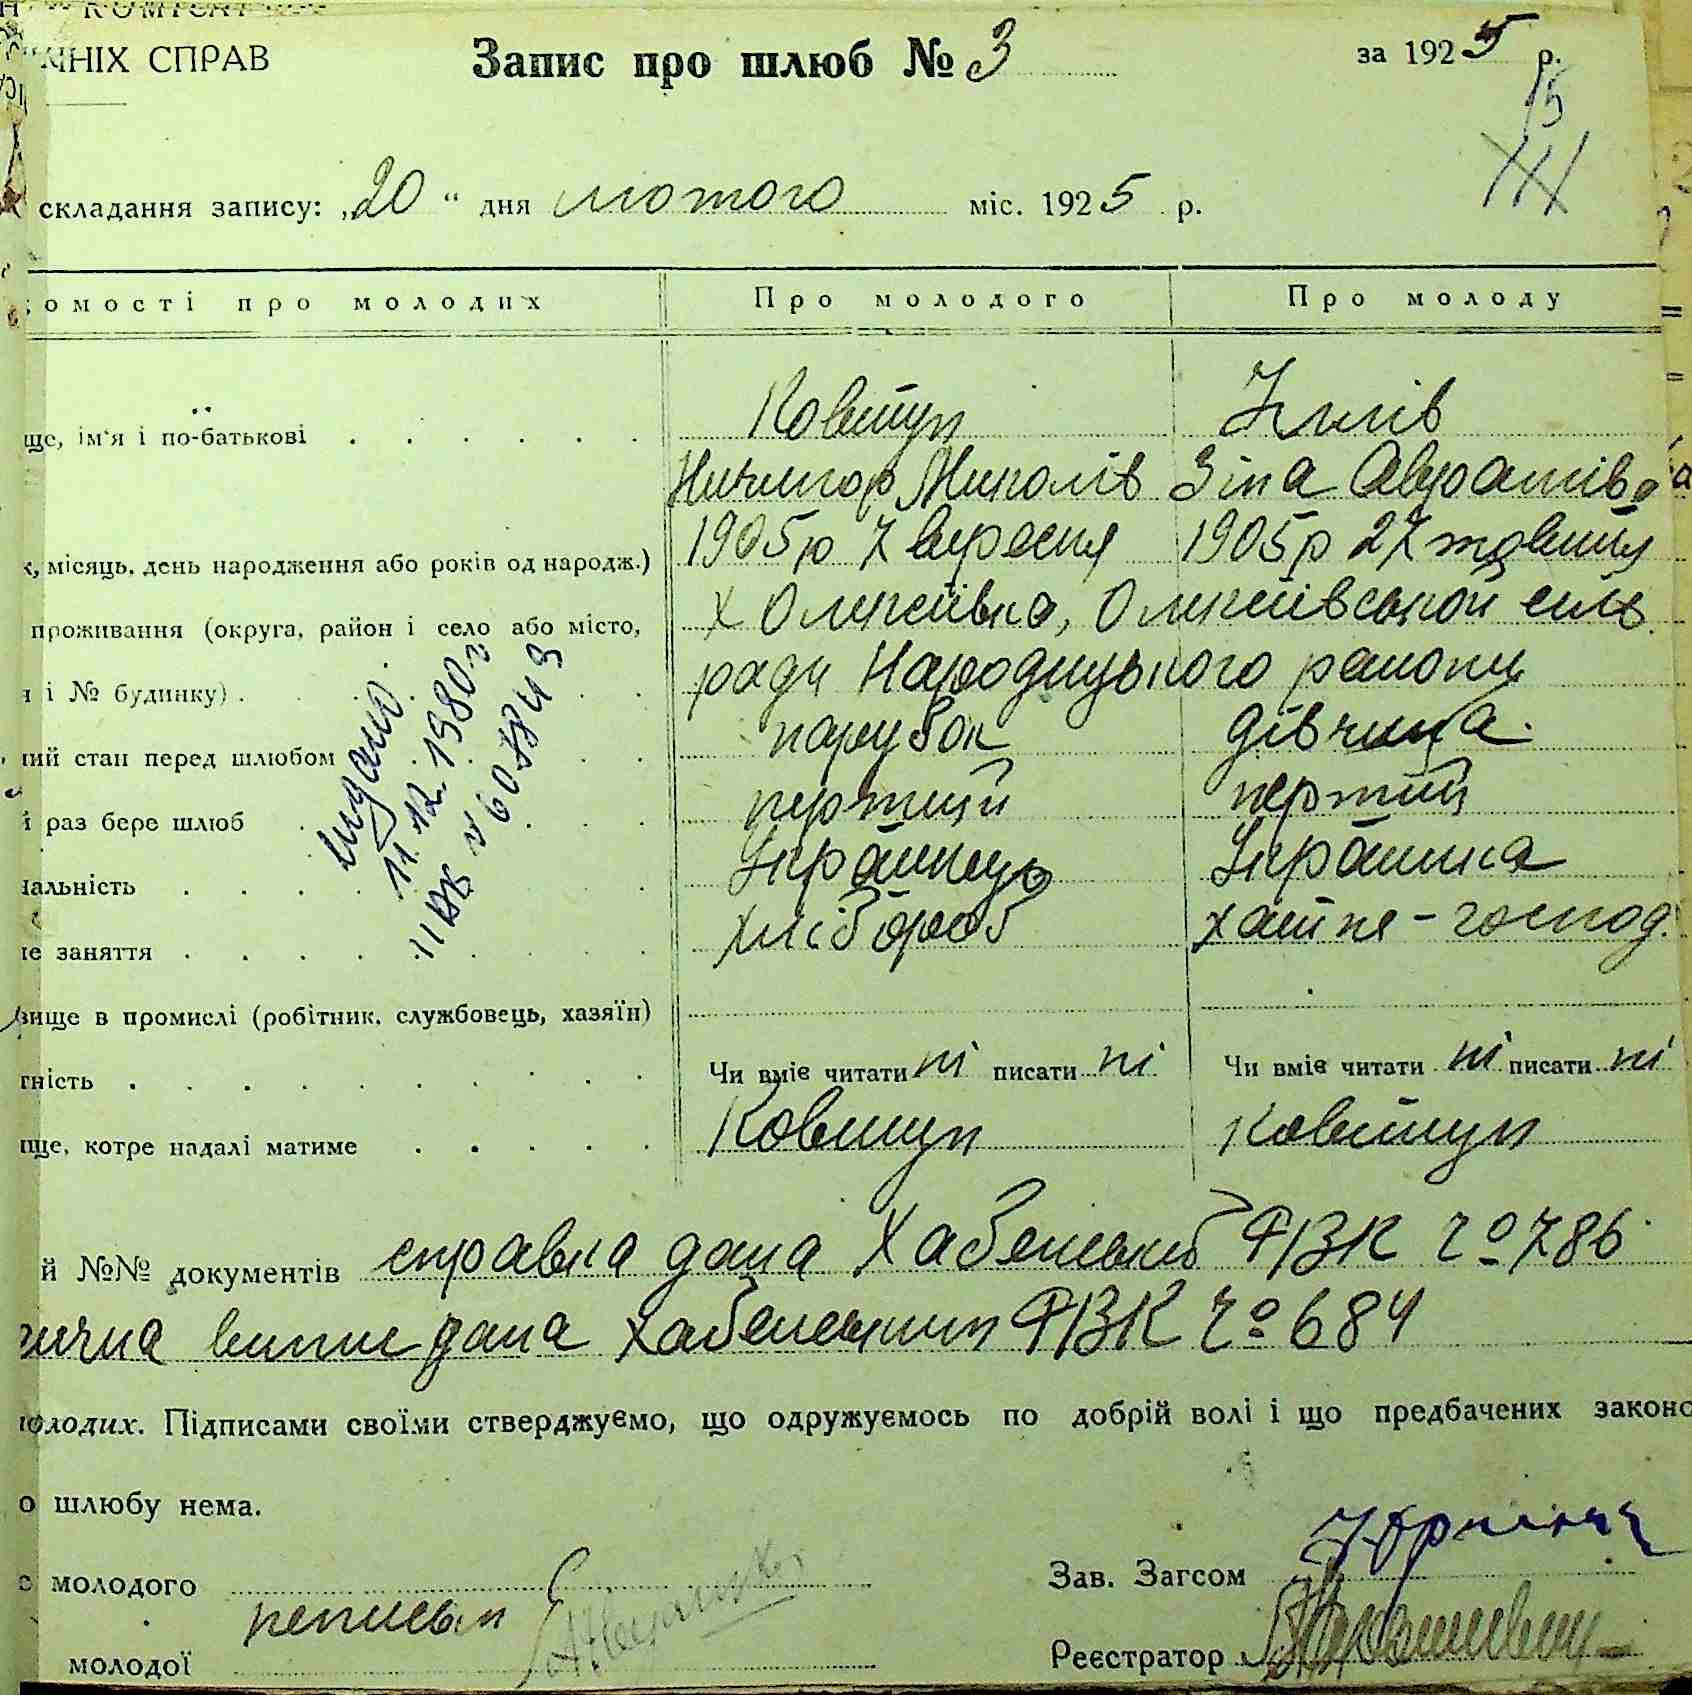 НІХ СПРАВ
Запис про шлюб № 3
за 1925 р.
15
складання запису: „20“ дня лютого міс. 1925 р.
омості про молодих Про молодого Про молоду
ще, ім'я і по-батькові Ковтун
Ничипор Миколів Зіна
к, місяць, день народження або років од народж.) 1905 р 7 вересня 1905 р 27 жовтня
проживання (округа, район і село або місто, х Олексіївка, Олексіївської сіль.
і № будинку) ради Народицького району
ний стан перед шлюбом парубок дівчина.
й раз бере шлюб перший перший
нальність Українець Українка
не заняття хлібороб хатнє-господ.
вище в промислі (робітник, службовець, хазяїн)
тність Чи вміє читати ні писати ні Чи вміє читати ні писати ні
ще, котре надалі матиме Ковтун Ковтун
видано
11.12.1980 г
й №№ документів справка дана РВК № 786
дана РВК № 684
молодих. Підписами своїми стверджуємо, що одружуємось по добрій волі і що предбачених законо
о шлюбу нема.
молодого
неписьм
молодої
Зав. Загсом
Реєстратор